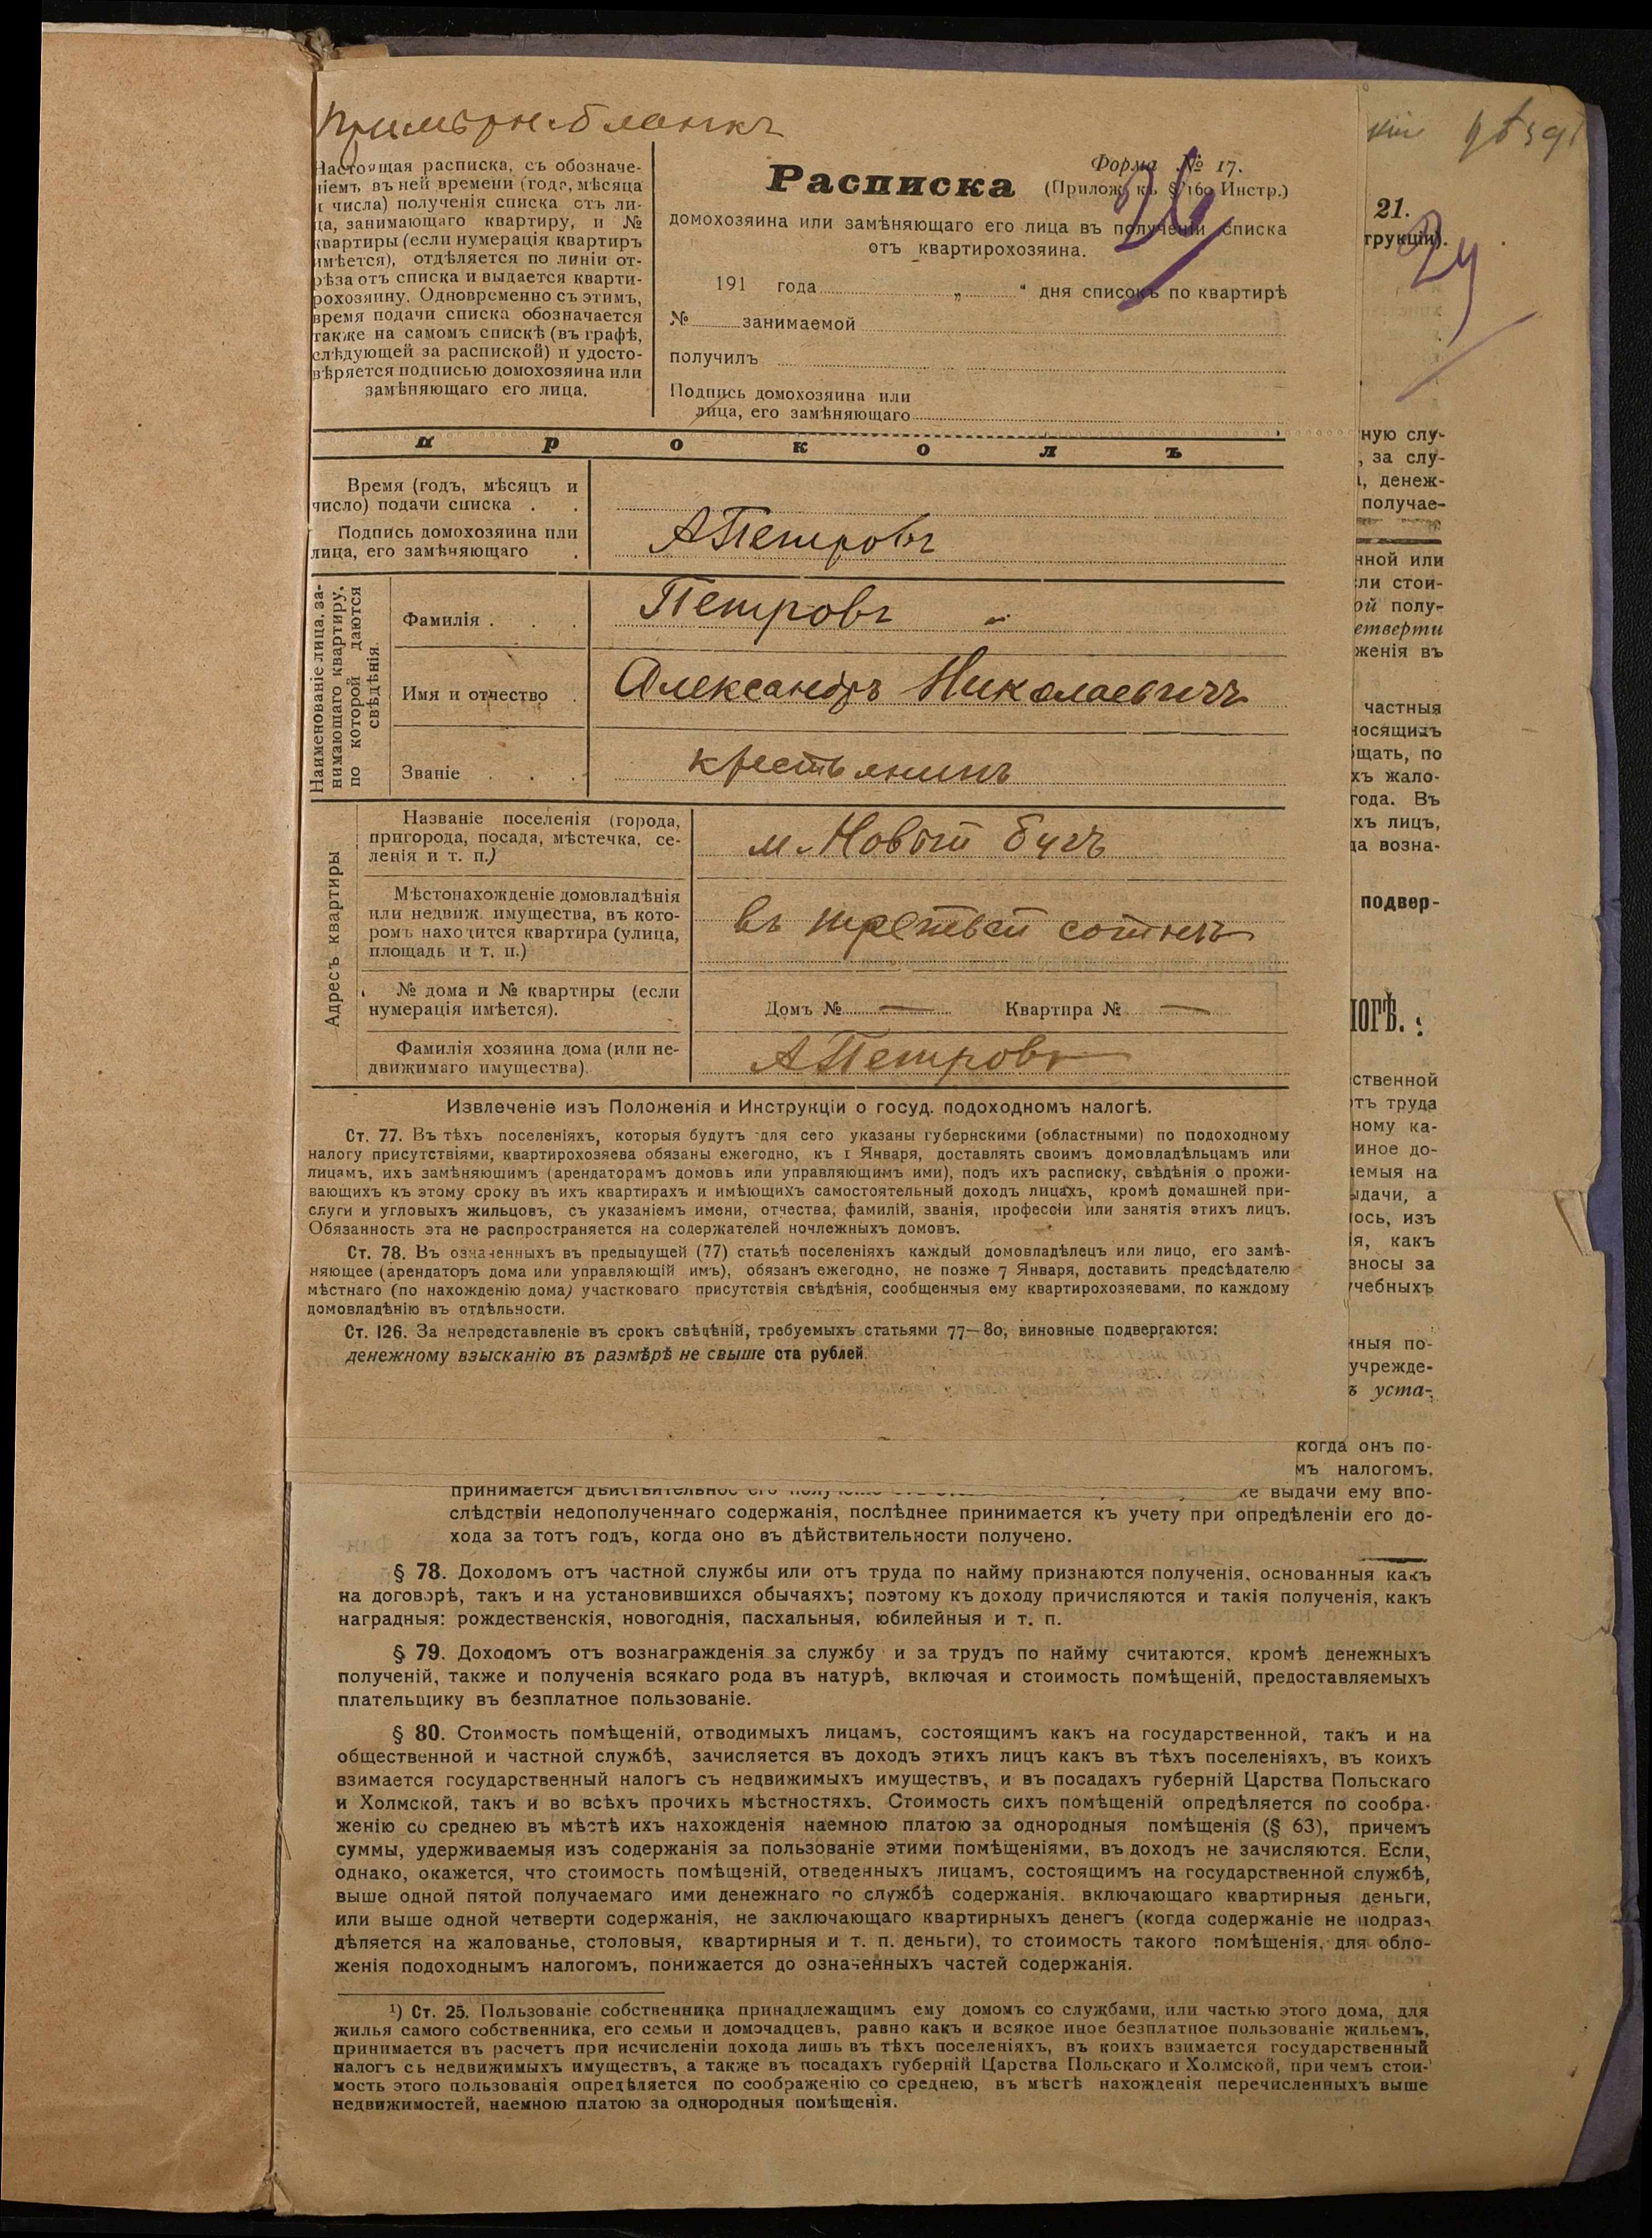 Настоящая расписка, съ обозначе-
ніемъ въ ней времени (года, мѣсяца
и числа) полученія списка отъ ли-
ца, занимающаго квартиру, и №
квартиры (если нумерація квартиръ
имѣется), отдѣляется по линіи от-
рѣза отъ списка и выдается кварти-
рохозяину. Одновременно съ этимъ,
время подачи списка обозначается
также на самомъ спискѣ (въ графѣ,
слѣдующей за распиской) и удосто-
вѣряется подписью домохозяина или
замѣняющаго его лица.
Форма № 17.
Расписка (Прилож. къ § 169 Инстр.)
домохозяина или замѣняющаго его лица въ полученіи списка
отъ квартирохозяина.
191 года „ “ дня списокъ по квартирѣ
№ занимаемой
получилъ
Подпись домохозяина или
лица, его замѣняющаго
п р о к о л ъ
Время (годъ, мѣсяцъ и
число) подачи списка . .
Подпись домохозяина или
лица, его замѣняющаго .
АПетровъ
Наименованіе лица, за-
нимающаго квартиру,
по которой даются
свѣдѣнія.
Фамилія . . .
Петровъ
Имя и отчество .
Александръ Николаевичъ
Званіе . . .
крестьянинъ
Адресъ квартиры
Названіе поселенія (города,
пригорода, посада, мѣстечка, се-
ленія и т. п.)
м. Новый Бугъ
Мѣстонахожденіе домовладѣнія
или недвиж. имущества, въ кото-
ромъ находится квартира (улица,
площадь и т. п.)
въ третьей сотнѣ
№ дома и № квартиры (если
нумерація имѣется).
Домъ № — Квартира № —
Фамилія хозяина дома (или не-
движимаго имущества).
АПетровъ
Извлеченіе изъ Положенія и Инструкціи о госуд. подоходномъ налогѣ.
Ст. 77. Въ тѣхъ поселеніяхъ, которыя будутъ для сего указаны губернскими (областными) по подоходному
налогу присутствіями, квартирохозяева обязаны ежегодно, къ 1 Января, доставлять своимъ домовладѣльцамъ или
лицамъ, ихъ замѣняющимъ (арендаторамъ домовъ или управляющимъ ими), подъ ихъ расписку, свѣдѣнія о прожи-
вающихъ къ этому сроку въ ихъ квартирахъ и имѣющихъ самостоятельный доходъ лицахъ, кромѣ домашней при-
слуги и угловыхъ жильцовъ, съ указаніемъ имени, отчества, фамилій, званія, профессіи или занятія этихъ лицъ.
Обязанность эта не распространяется на содержателей ночлежныхъ домовъ.
Ст. 78. Въ означенныхъ въ предыдущей (77) статьѣ поселеніяхъ каждый домовладѣлецъ или лицо, его замѣ-
няющее (арендаторъ дома или управляющій имъ), обязанъ ежегодно, не позже 7 Января, доставить предсѣдателю
мѣстнаго (по нахожденію дома) участковаго присутствія свѣдѣнія, сообщенныя ему квартирохозяевами, по каждому
домовладѣнію въ отдѣльности.
Ст. 126. За непредставленіе въ срокъ свѣдѣній, требуемыхъ статьями 77—80, виновные подвергаются:
денежному взысканію въ размѣрѣ не свыше ста рублей.
21.
трукціи).
ную слу-
, за слу-
, денеж-
получае-
нной или
ли стои-
ой полу-
етверти
женія въ
частныя
носящихъ
щать, по
хъ жало-
года. Въ
хъ лицъ,
да возна-
подвер-
ЛОГѢ.
ственной
отъ труда
ному ка-
иное до-
емыя на
ыдачи, а
лось, изъ
ія, какъ
зносы за
учебныхъ
нныя по-
учрежде-
ъ уста-
когда онъ по-
мъ налогомъ.
же выдачи ему впо-
слѣдствіи недополученнаго содержанія, послѣднее принимается къ учету при опредѣленіи его до-
хода за тотъ годъ, когда оно въ дѣйствительности получено.
§ 78. Доходомъ отъ частной службы или отъ труда по найму признаются полученія, основанныя какъ
на договорѣ, такъ и на установившихся обычаяхъ; поэтому къ доходу причисляются и такія полученія, какъ
наградныя: рождественскія, новогоднія, пасхальныя, юбилейныя и т. п.
§ 79. Доходомъ отъ вознагражденія за службу и за трудъ по найму считаются, кромѣ денежныхъ
полученій, также и полученія всякаго рода въ натурѣ, включая и стоимость помѣщеній, предоставляемыхъ
плательщику въ безплатное пользованіе.
§ 80. Стоимость помѣщеній, отводимыхъ лицамъ, состоящимъ какъ на государственной, такъ и на
общественной и частной службѣ, зачисляется въ доходъ этихъ лицъ какъ въ тѣхъ поселеніяхъ, въ коихъ
взимается государственный налогъ съ недвижимыхъ имуществъ, и въ посадахъ губерній Царства Польскаго
и Холмской, такъ и во всѣхъ прочихъ мѣстностяхъ. Стоимость сихъ помѣщеній опредѣляется по сообра-
женію со среднею въ мѣстѣ ихъ нахожденія наемною платою за однородныя помѣщенія (§ 63), причемъ
суммы, удерживаемыя изъ содержанія за пользованіе этими помѣщеніями, въ доходъ не зачисляются. Если,
однако, окажется, что стоимость помѣщеній, отведенныхъ лицамъ, состоящимъ на государственной службѣ,
выше одной пятой получаемаго ими денежнаго по службѣ содержанія, включающаго квартирныя деньги,
или выше одной четверти содержанія, не заключающаго квартирныхъ денегъ (когда содержаніе не подраз-
дѣляется на жалованье, столовыя, квартирныя и т. п. деньги), то стоимость такого помѣщенія, для обло-
женія подоходнымъ налогомъ, понижается до означенныхъ частей содержанія.
¹) Ст. 25. Пользованіе собственника принадлежащимъ ему домомъ со службами, или частью этого дома, для
жилья самого собственника, его семьи и домочадцевъ, равно какъ и всякое иное безплатное пользованіе жильемъ,
принимается въ расчетъ при исчисленіи дохода лишь въ тѣхъ поселеніяхъ, въ коихъ взимается государственный
налогъ съ недвижимыхъ имуществъ, а также въ посадахъ губерній Царства Польскаго и Холмской, при чемъ стои-
мость этого пользованія опредѣляется по соображенію со среднею, въ мѣстѣ нахожденія перечисленныхъ выше
недвижимостей, наемною платою за однородныя помѣщенія.